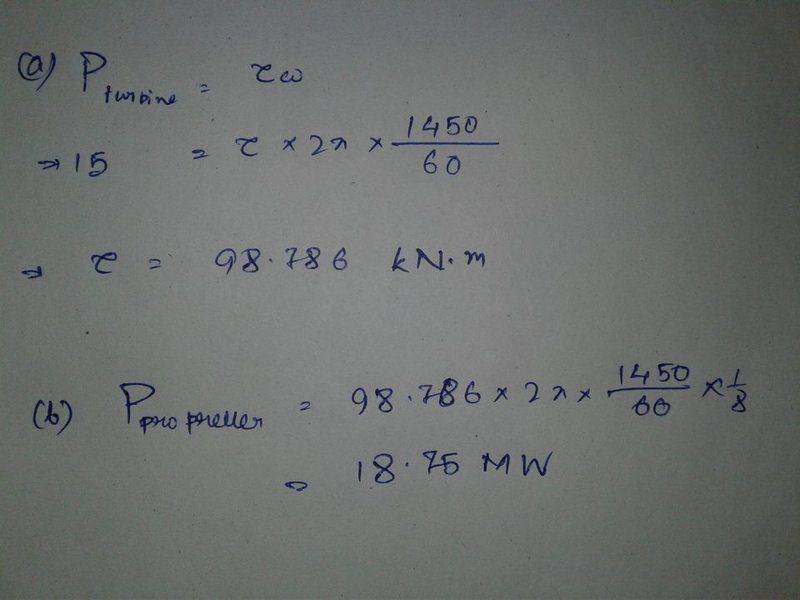 (a) P turbine = τω
⇒ 15 = τ × 2π × 1450/60
⇒ τ = 98.786 kN.m
(b) P propheller = 98.786 × 2π × 1450/60 × 1/8
= 18.75 MW